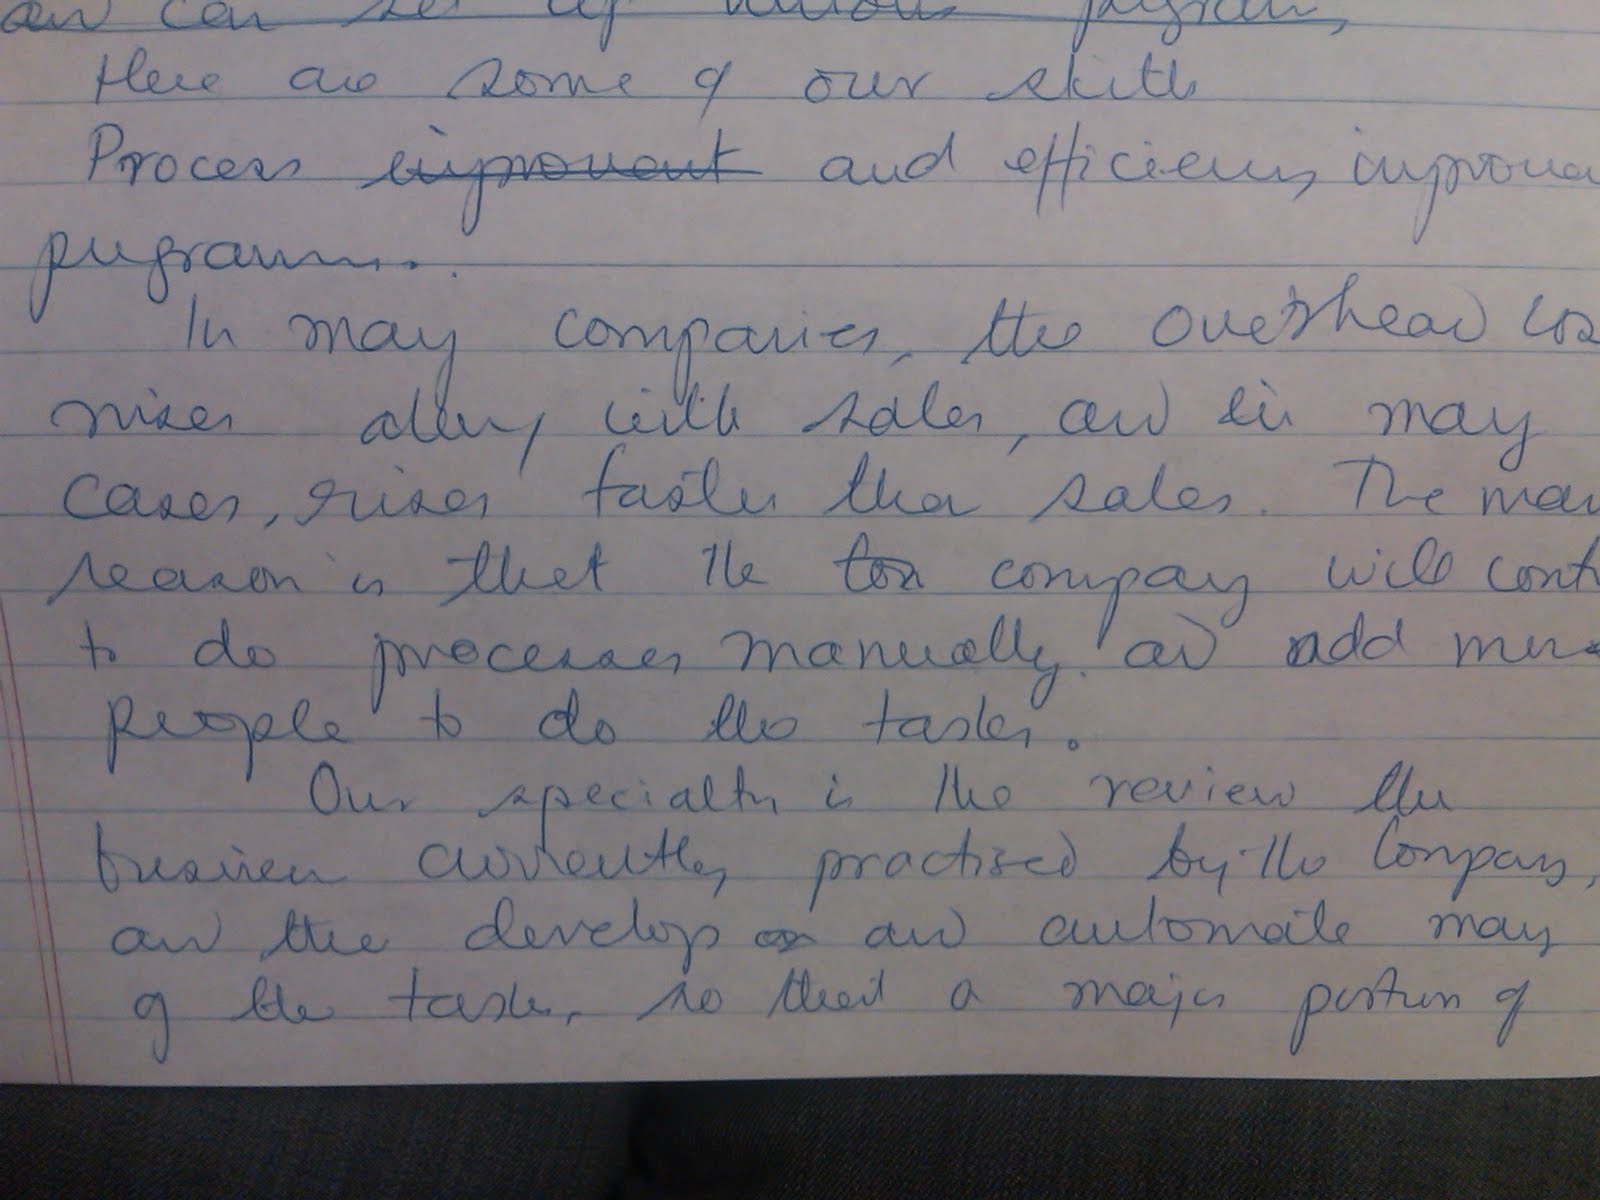 and can set up various program,
Here are some of our skills
Process improvement and efficiency improve
programs.
In many companies, the overhead cos
rises along with sales, and in many
cases, rises faster than sales. The main
reason is that the company will cont
to do processes manually and add more
people to do the tasks.
Our specialty is the review the
business currently practised by the Company,
and the develop and automate many
of the tasks, so that a major portion of